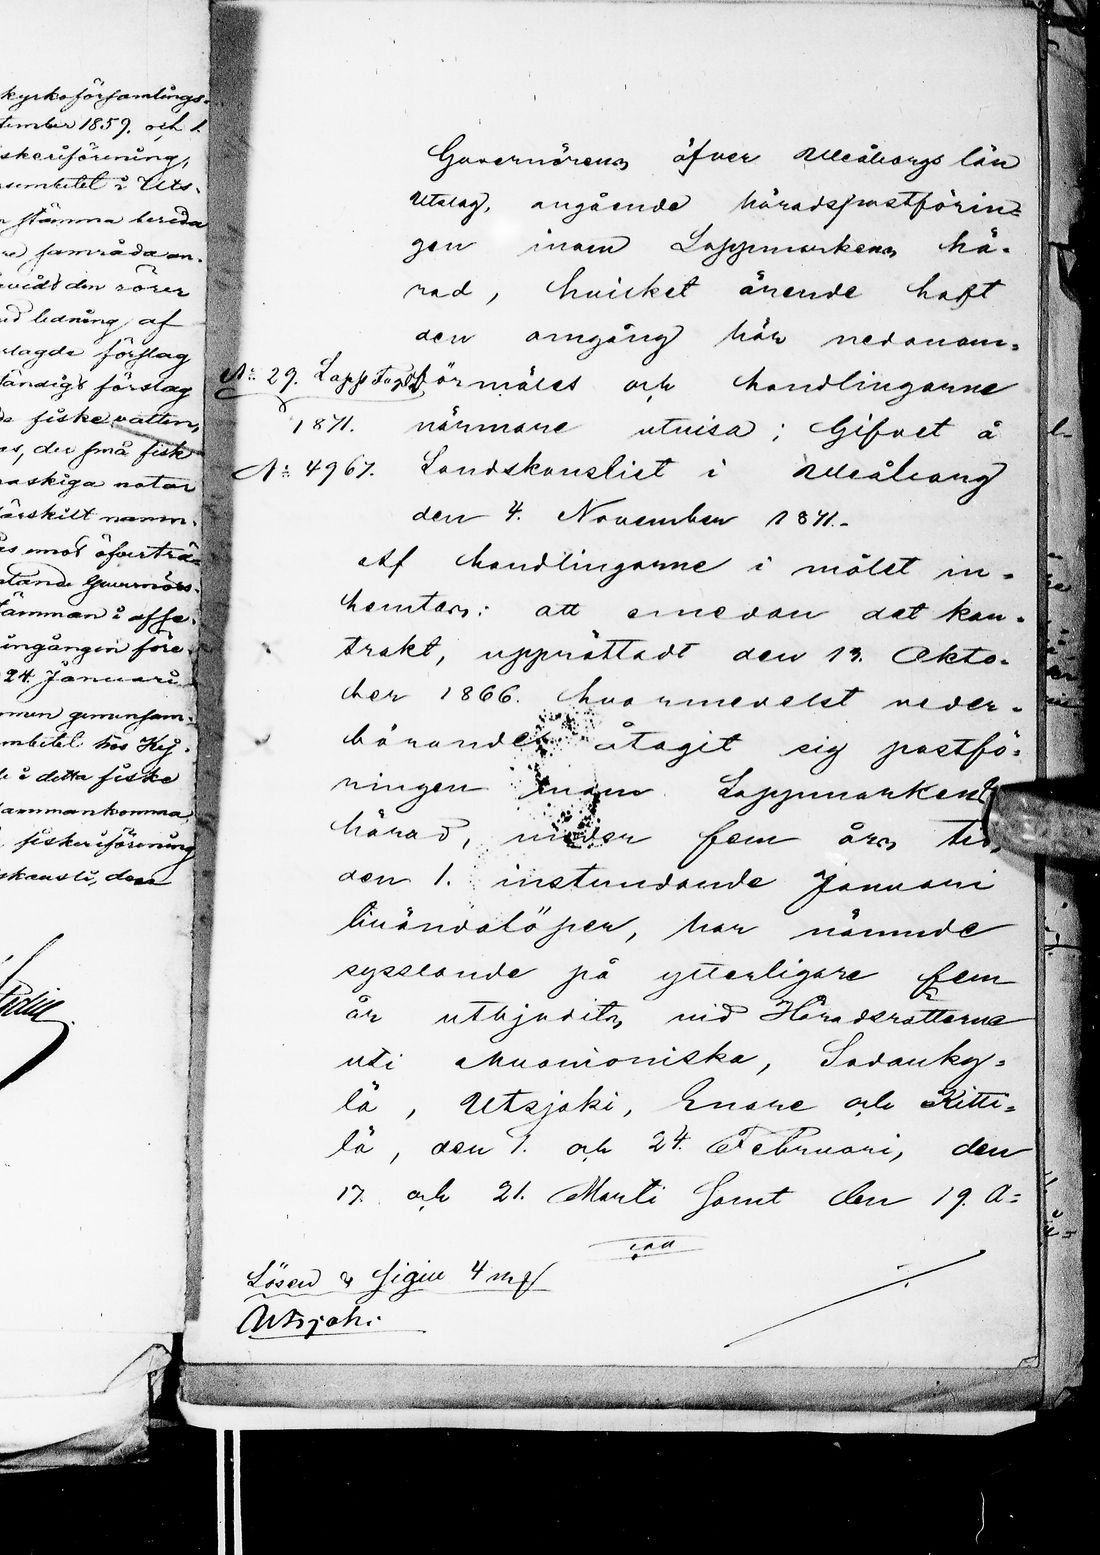 kyrkoförsamlings-
tember 1859. och
skeriförening,
sembetet i Uts-
stämma bereda
samråda
vidt den rörer
ledning af
förslag
ständigt förslag
fiskevatten,
de små fisk
maskiga notar
särskilt namn
emot öfverträ-
Guvernörs-
stämman i
ingången före-
24 Januari
gemensam-
embetet hos
i detta fiske
sammankomma
fiskeriförening
den
Guvernörens öfver Uleåborgs län
Utslag, angående häradspostförin-
gen inom Lappmarkens hä-
rad, hvilket ärende haft
den omgång här nedanom-
förmäles och handlingarne
närmare utvisa; Gifvet å
Landskansliet i Uleåborg
den 4. November 1871.
No 29. Lapp Fogdt
1871.
No 4967.
Af handlingarne i målet in-
hemtas: att emedan det kon-
trakt, upprättadt den 13. Okto-
ber 1866. hvarmedelst veder-
börande åtagit sig postfö-
ringen inom Lappmarkens
härad, under fem års tid,
den 1. instundande Januari
tilländalöper, har nämnde
sysslande på ytterligare fem
år utbjudits vid Häradsrätterne
uti Muonioniska, Sodanky-
lä, Utsjoki, Enare och Kitti-
lä, den 1. och 24. Februari, den
17. och 21. Marti samt den 19. A-
Lösen & Sigill 4 mf
Utsjoki